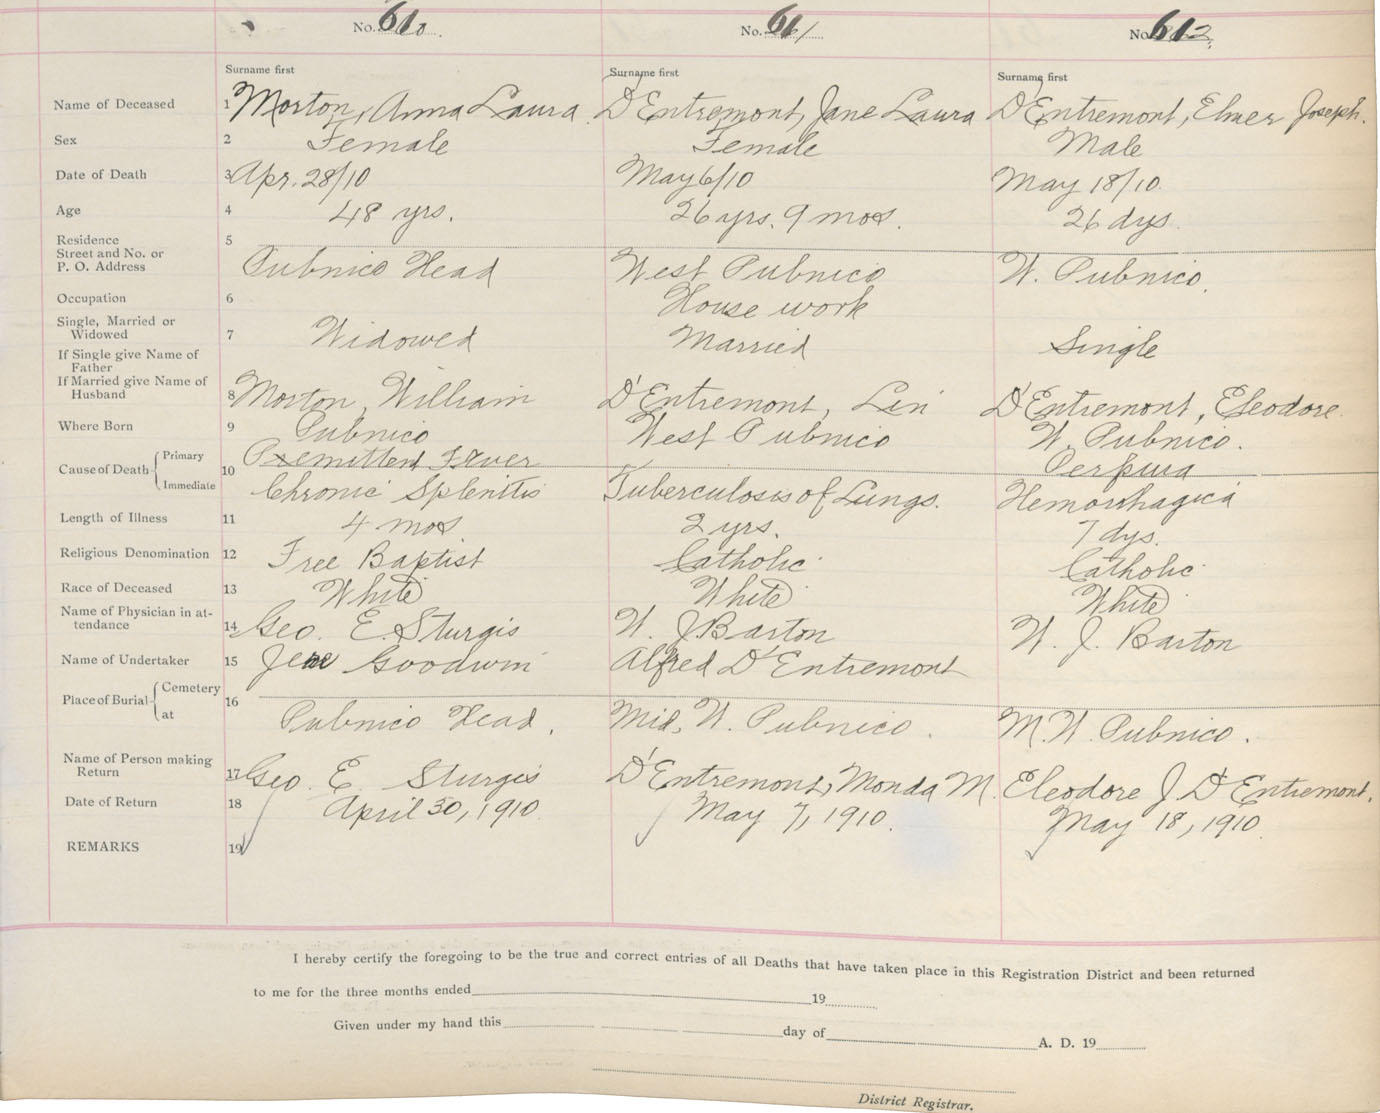 No. 610.
No. 611
No. 612
Surname first
Surname first
Surname first
Name of Deceased 1 Morton, Anna Laura D'Entremont, Jane Laura D'Entremont, Elmer Joseph.
Sex 2 Female Female Male
Date of Death 3 Apr. 28/10 May 6/10 May 18/10
Age 4 48 yrs. 26 yrs. 9 mos. 26 dys.
Residence 5
Street and No. or
P. O. Address Pubnico Head West Pubnico W. Pubnico.
Occupation 6 House work
Single, Married or
Widowed 7 Widowed Married Single
If Single give Name of
Father
If Married give Name of
Husband 8 Morton, William D'Entremont, Len D'Entremont, Eleodore
Where Born 9 Pubnico West Pubnico W. Pubnico.
Cause of Death Primary Remittent Fever Perpura
10
Immediate Chronic Splenitis Tuberculosis of Lungs. Hemorrhagica
Length of Illness 11 4 mos 2 yrs. 7 dys.
Religious Denomination 12 Free Baptist Catholic Catholic
Race of Deceased 13 White White White
Name of Physician in at-
tendance 14 Geo. E. Sturgis W. J. Barton W. J. Barton
Name of Undertaker 15 Goodwin Alfred D'Entremont
Place of Burial Cemetery 16
at Pubnico Head. Mid. W. Pubnico. M. W. Pubnico.
Name of Person making
Return 17 Geo. E. Sturgis D'Entremont, Monda M. Eleodore J. D'Entremont.
Date of Return 18 April 30, 1910 May 7, 1910. May 18, 1910.
REMARKS 19
I hereby certify the foregoing to be the true and correct entries of all Deaths that have taken place in this Registration District and been returned
to me for the three months ended 19
Given under my hand this day of A. D. 19
District Registrar.